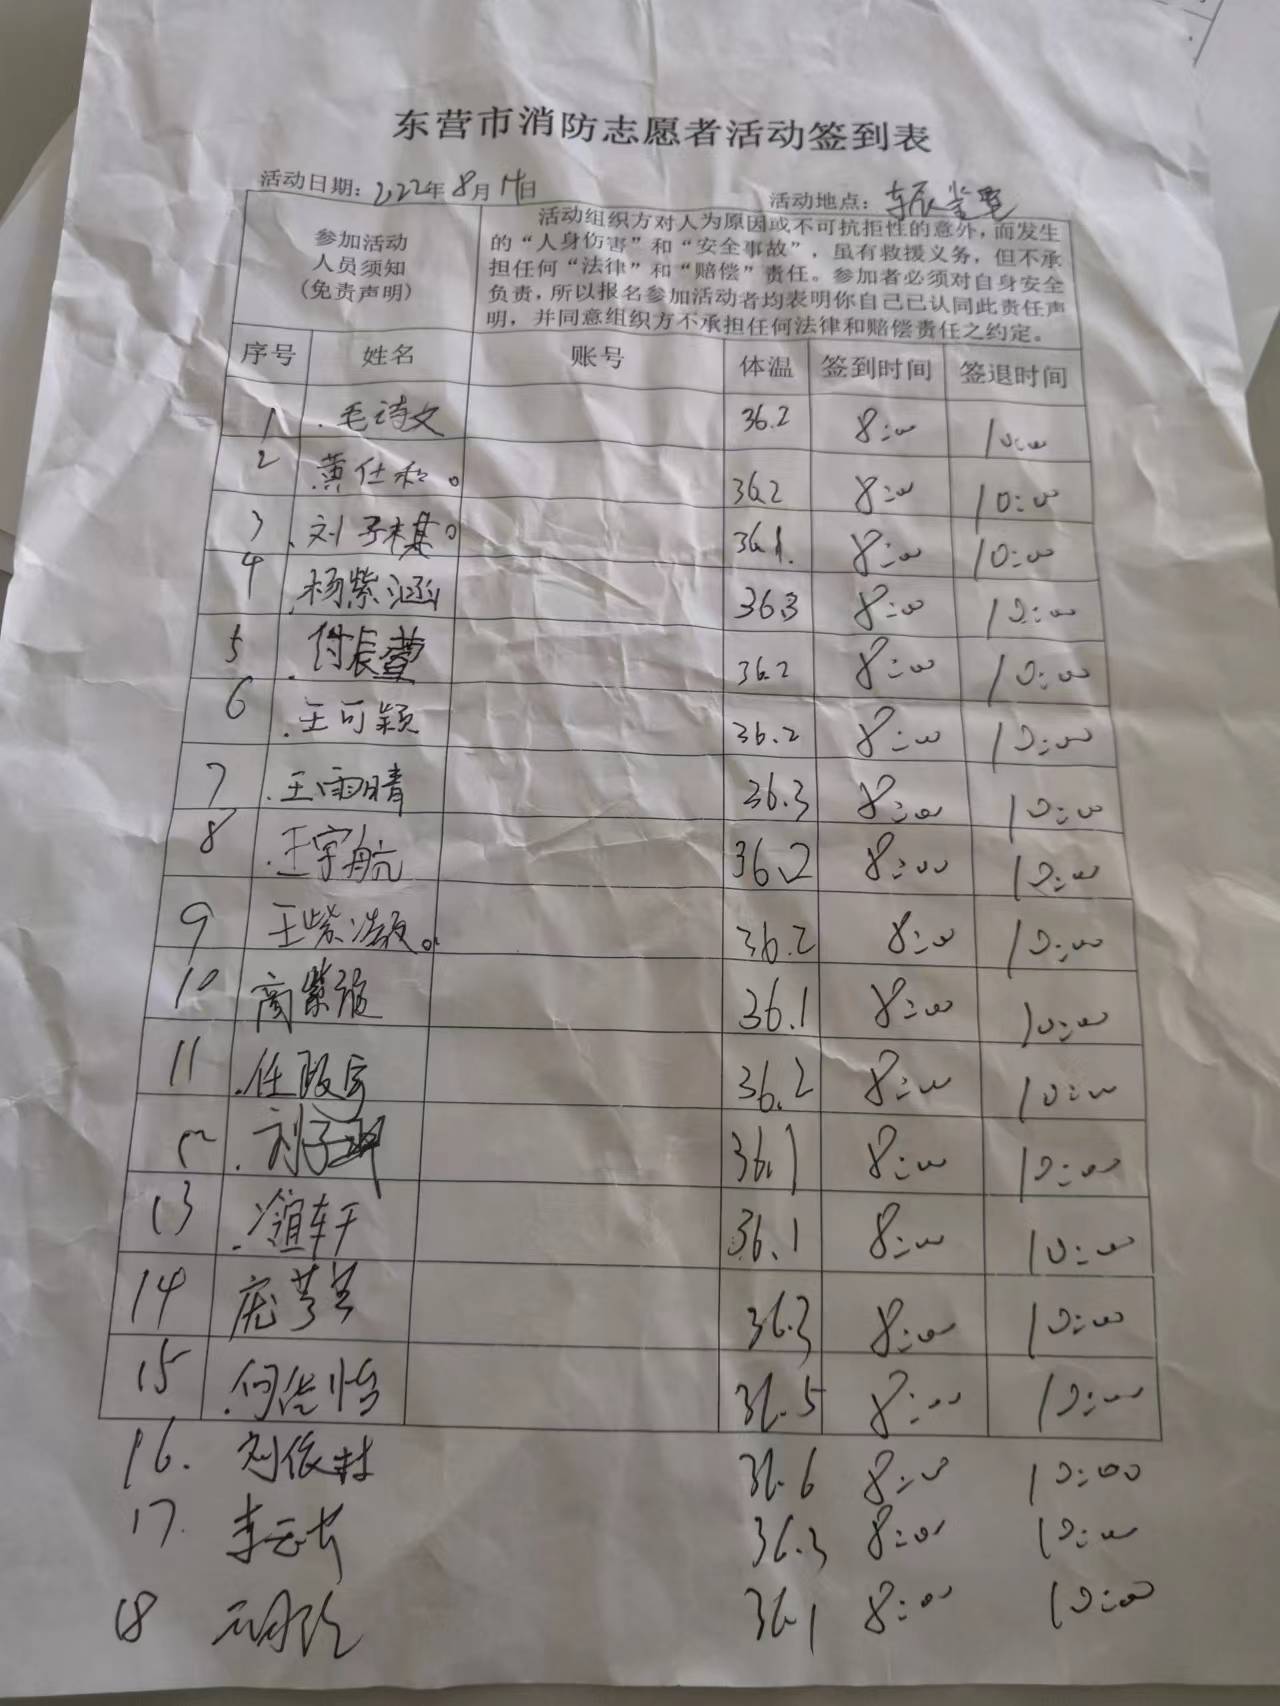 东营市消防志愿者活动签到表
活动日期：2022年8月14日 活动地点：东辰
参加活动
人员须知
(免责声明)
活动组织方对人为原因或不可抗拒性的意外，而发生
的“人身伤害”和“安全事故”，虽有救援义务，但不承
担任何“法律”和“赔偿”责任。参加者必须对自身安全
负责，所以报名参加活动者均表明你自己已认同此责任声
明，并同意组织方不承担任何法律和赔偿责任之约定。
序号 姓名 账号 体温 签到时间 签退时间
1 毛诗文 36.2 8:00 10:00
2 黄仕和 36.2 8:00 10:00
3 刘子棋 36.1 8:00 10:00
4 杨紫涵 36.3 8:00 10:00
5 付辰萱 36.2 8:00 10:00
6 王可颖 36.2 8:00 10:00
7 王雨晴 36.3 8:00 10:00
8 王宇航 36.2 8:00 10:00
9 王紫 36.2 8:00 10:00
10 商紫 36.1 8:00 10:00
11 任 36.2 8:00 10:00
12 刘子 36.1 8:00 10:00
13 冷谊轩 36.1 8:00 10:00
14 庞 36.3 8:00 10:00
15 何 怡 36.5 8:00 10:00
16. 刘依林 36.6 8:00 10:00
17. 李 36.3 8:00 10:00
18 36.1 8:00 10:00